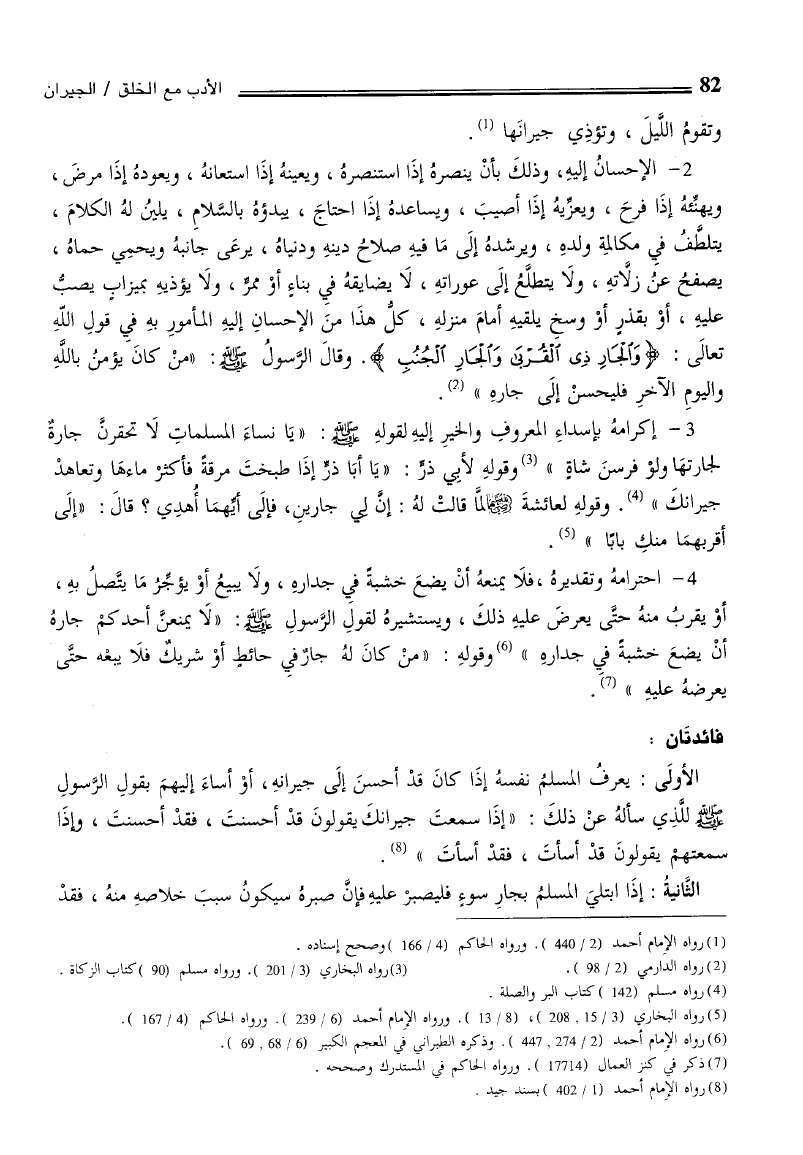 82 الأدب مع الخلق / الجيران
وتقومُ اللَّيلَ ، وتؤذِي جيرانَها (1) .
2- الإحسانُ إليهِ، وذلكَ بأنْ ينصرهُ إذَا استنصرهُ ، ويعينهُ إذَا استعانهُ ، ويعودهُ إذَا مرضَ ،
ويهنِّئهُ إذَا فرحَ ، ويعزِّيهُ إذَا أصيبَ ، ويساعدهُ إذَا احتاجَ ، يبدؤهُ بالسَّلامِ ، يلينُ لهُ الكلامَ ،
يتلطَّفُ في مكالمةِ ولدهِ ، ويرشدهُ إلَى مَا فيهِ صلاحُ دينهِ ودنياهُ ، يرعَى جانبهُ ويحمِي حماهُ ،
يصفحُ عنْ زلَّاتهِ ، ولَا يتطلَّعُ إلَى عوراتهِ ، لَا يضايقهُ في بناءٍ أوْ ممرٍّ ، ولَا يؤذيهِ بميزابٍ يصبُّ
عليهِ ، أوْ بقذرٍ أوْ وسخٍ يلقيهِ أمامَ منزلهِ ، كلُّ هذَا منَ الإحسانِ إليهِ المأمورِ بهِ في قولِ اللَّهِ
تعالَى : ﴿ وَٱلْجَارِ ذِى ٱلْقُرْبَىٰ وَٱلْجَارِ ٱلْجُنُبِ ﴾. وقالَ الرَّسولُ ﷺ: «منْ كانَ يؤمنُ باللَّهِ
واليومِ الآخرِ فليحسنْ إلَى جارهِ » (2) .
3- إكرامهُ بإسداءِ المعروفِ والخيرِ إليهِ لقولهِ ﷺ : « يَا نساءَ المسلماتِ لَا تحقرنَّ جارةٌ
لجارتهَا ولوْ فرسنَ شاةٍ » (3) وقولهِ لأبِي ذرٍّ : « يَا أبَا ذرٍّ إذَا طبختَ مرقةً فأكثرْ ماءهَا وتعاهدْ
جيرانكَ » (4). وقولهِ لعائشةَ لمَّا قالتْ لهُ : إنَّ لِي جارينِ، فإلَى أيِّهمَا أُهدِي ؟ قالَ : «إلَى
أقربهمَا منكِ بابًا » (5) .
4- احترامهُ وتقديرهُ ،فلَا يمنعهُ أنْ يضعَ خشبةً في جدارهِ ، ولَا يبيعُ أوْ يؤجِّرُ مَا يتَّصلُ بهِ ،
أوْ يقربُ منهُ حتَّى يعرضَ عليهِ ذلكَ ، ويستشيرهُ لقولِ الرَّسولِ ﷺ : «لَا يمنعنَّ أحدكمْ جارهُ
أنْ يضعَ خشبةً في جدارهِ » (6) وقولهِ : « منْ كانَ لهُ جارٌ في حائطٍ أوْ شريكٌ فلَا يبعْه حتَّى
يعرضهُ عليهِ » (7) .
فائدتَان :
الأولَى : يعرفُ المسلمُ نفسهُ إذَا كانَ قدْ أحسنَ إلَى جيرانهِ، أوْ أساءَ إليهمَ بقولِ الرَّسولِ
ﷺ للَّذِي سألهُ عنْ ذلكَ : «إذَا سمعتَ جيرانكَ يقولونَ قدْ أحسنتَ ، فقدْ أحسنتَ ، وإذَا
سمعتهمْ يقولونَ قدْ أسأتَ ، فقدْ أسأتَ » (8) .
الثَّانيةُ : إذَا ابتليَ المسلمُ بجارِ سوءٍ فليصبرْ عليهِ فإنَّ صبرهُ سيكونُ سببَ خلاصهِ منهُ ، فقدْ
(1) رواه الإمام أحمد (2 / 440 ). ورواه الحاكم (4 / 166 ) وصحح إسناده .
(2) رواه الدارمي (2 / 98 ). (3) رواه البخاري (3 / 201 ). ورواه مسلم (90 ) كتاب الزكاة .
(4) رواه مسلم (142 ) كتاب البر والصلة .
(5) رواه البخاري (3 / 15 , 208 )، (8 / 13 ). ورواه الإمام أحمد (6 / 239 ). ورواه الحاكم (4 / 167 ).
(6) رواه الإمام أحمد (2 / 274 , 447 ). وذكره الطبراني في المعجم الكبير (6 / 68 , 69 ).
(7) ذكر في كنز العمال (17714 ). ورواه الحاكم في المستدرك وصححه .
(8) رواه الإمام أحمد (1 / 402 ) بسند جيد .